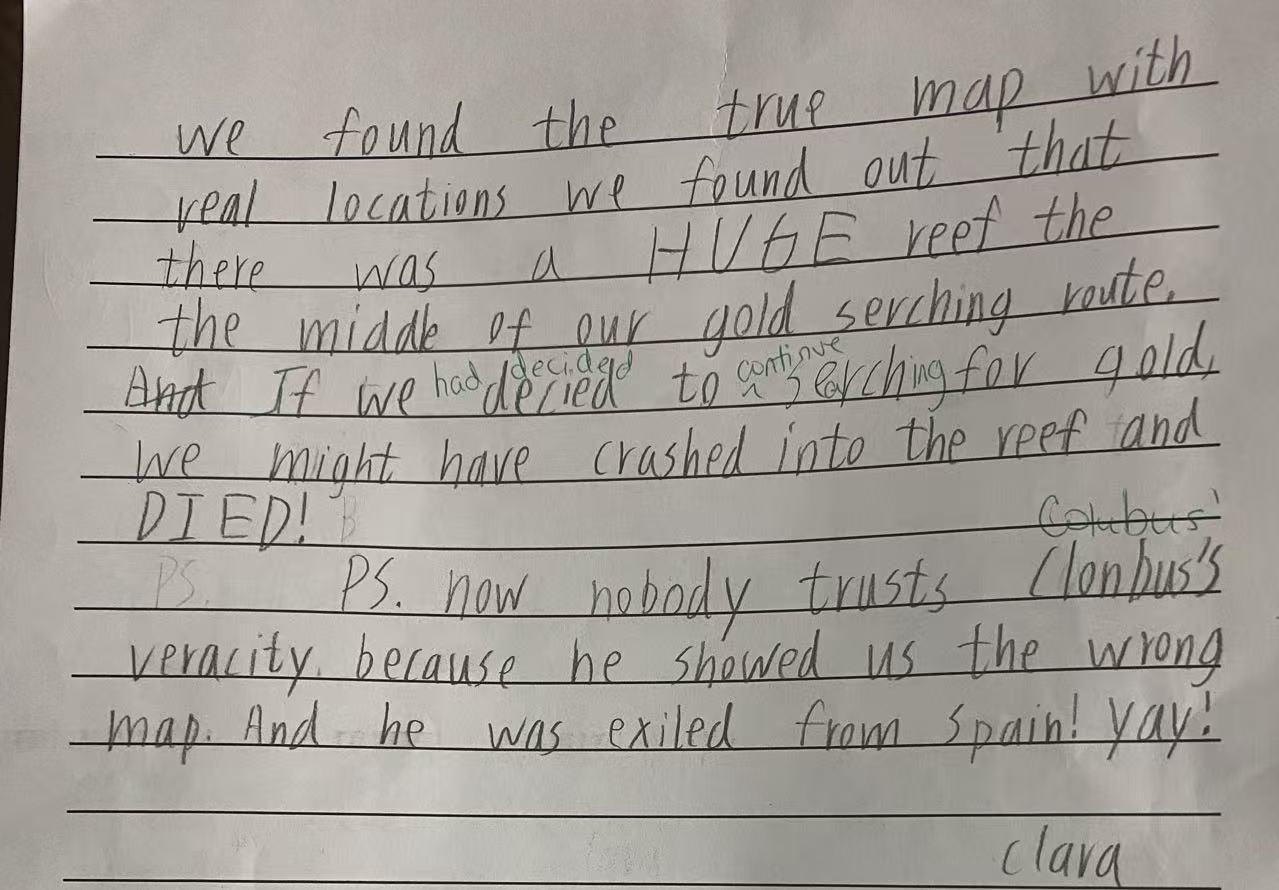 we found the true map with
real locations we found out that
there was a HUGE reef the
the middle of our gold serching route.
And If we had decided decied to continue searching for gold,
we might have crashed into the reef and
DIED! B
Colubus'
PS. PS. now nobody trusts Clonbus's
veracity. because he showed us the wrong
map. And he was exiled from Spain! yay!
clara